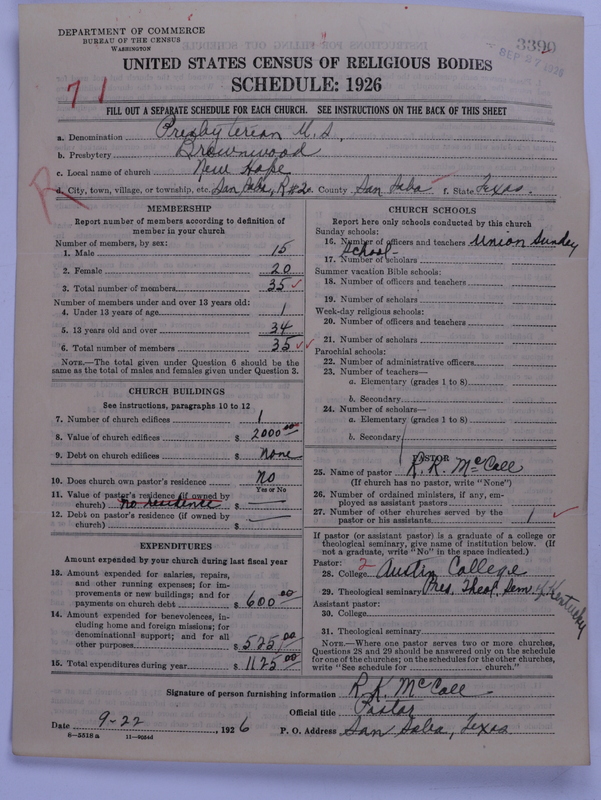 DEPARTMENT OF COMMERCE
BUREAU OF THE CENSUS
WASHINGTON
3390
SEP 27 1926
UNITED STATES CENSUS OF RELIGIOUS BODIES
SCHEDULE: 1926
71
FILL OUT A SEPARATE SCHEDULE FOR EACH CHURCH. SEE INSTRUCTIONS ON THE BACK OF THIS SHEET
a. Denomination Presbyterian U.S.
b. Presbytery Brownwood
c. Local name of church New Hope
d. City, town, village, or township, etc. San Saba, R#2 e. County San Saba f. State Texas.
R
MEMBERSHIP
Report number of members according to definition of member in your church
Number of members, by sex:
1. Male 15
2. Female 20
3. Total number of members 35
Number of members under and over 13 years old:
4. Under 13 years of age 1
5. 13 years old and over 34
6. Total number of members 35
NOTE.—The total given under Question 6 should be the
same as the total of males and females given under Question 3.
CHURCH BUILDINGS
See instructions, paragraphs 10 to 12
7. Number of church edifices 1
8. Value of church edifices $ 2000.00
9. Debt on church edifices $ none
10. Does church own pastor's residence no
Yes or No
11. Value of pastor's residence (if owned by
church) no residence $ —
12. Debt on pastor's residence (if owned by
church) $ —
EXPENDITURES
Amount expended by your church during last fiscal year
13. Amount expended for salaries, repairs,
and other running expenses; for im-
provements or new buildings; and for
payments on church debt $ 600.00
14. Amount expended for benevolences, in-
cluding home and foreign missions; for
denominational support; and for all
other purposes $ 525.00
15. Total expenditures during year $ 1125.00
CHURCH SCHOOLS
Report here only schools conducted by this church
Sunday schools:
16. Number of officers and teachers Union Sunday
School-
17. Number of scholars
Summer vacation Bible schools:
18. Number of officers and teachers
19. Number of scholars
Week-day religious schools:
20. Number of officers and teachers
21. Number of scholars
Parochial schools:
22. Number of administrative officers
23. Number of teachers—
a. Elementary (grades 1 to 8)
b. Secondary
24. Number of scholars—
a. Elementary (grades 1 to 8)
b. Secondary
PASTOR
25. Name of pastor R. K. McCall
(If church has no pastor, write "None")
26. Number of ordained ministers, if any, em-
ployed as assistant pastors
27. Number of other churches served by the
pastor or his assistants 1
If pastor (or assistant pastor) is a graduate of a college or
theological seminary, give name of institution below. (If
not a graduate, write "No" in the space indicated.)
Pastor: 2
28. College Austin College
29. Theological seminary Pres. Theol. Sem. of Kentucky
Assistant pastor:
30. College
31. Theological seminary
NOTE.—Where one pastor serves two or more churches,
Questions 28 and 29 should be answered only on the schedule
for one of the churches; on the schedules for the other churches,
write "See schedule for church."
Signature of person furnishing information R. K. McCall
Official title Pastor
Date 9-22 1926 P. O. Address San Saba, Texas
8—5518a 11—90544